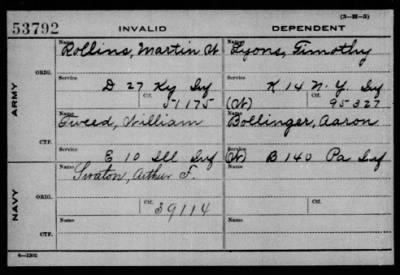 (3-H-3)
53792 INVALID DEPENDENT
Name Name
Rollins, Martin W Lyons, Timothy
ORIG. Service Service
D 27 Ky Inf K 14 N.Y. Inf
Ctf. Ctf.
51175 (W) 95327
ARMY
Name Name
Tweed, William Bollinger, Aaron
CTF. Service Service
E 10 Ill Inf (W) B 140 Pa Inf
Name Name
Swaton, Arthur F.
ORIG.
Ctf. Ctf.
39114
NAVY
Name Name
CTF.